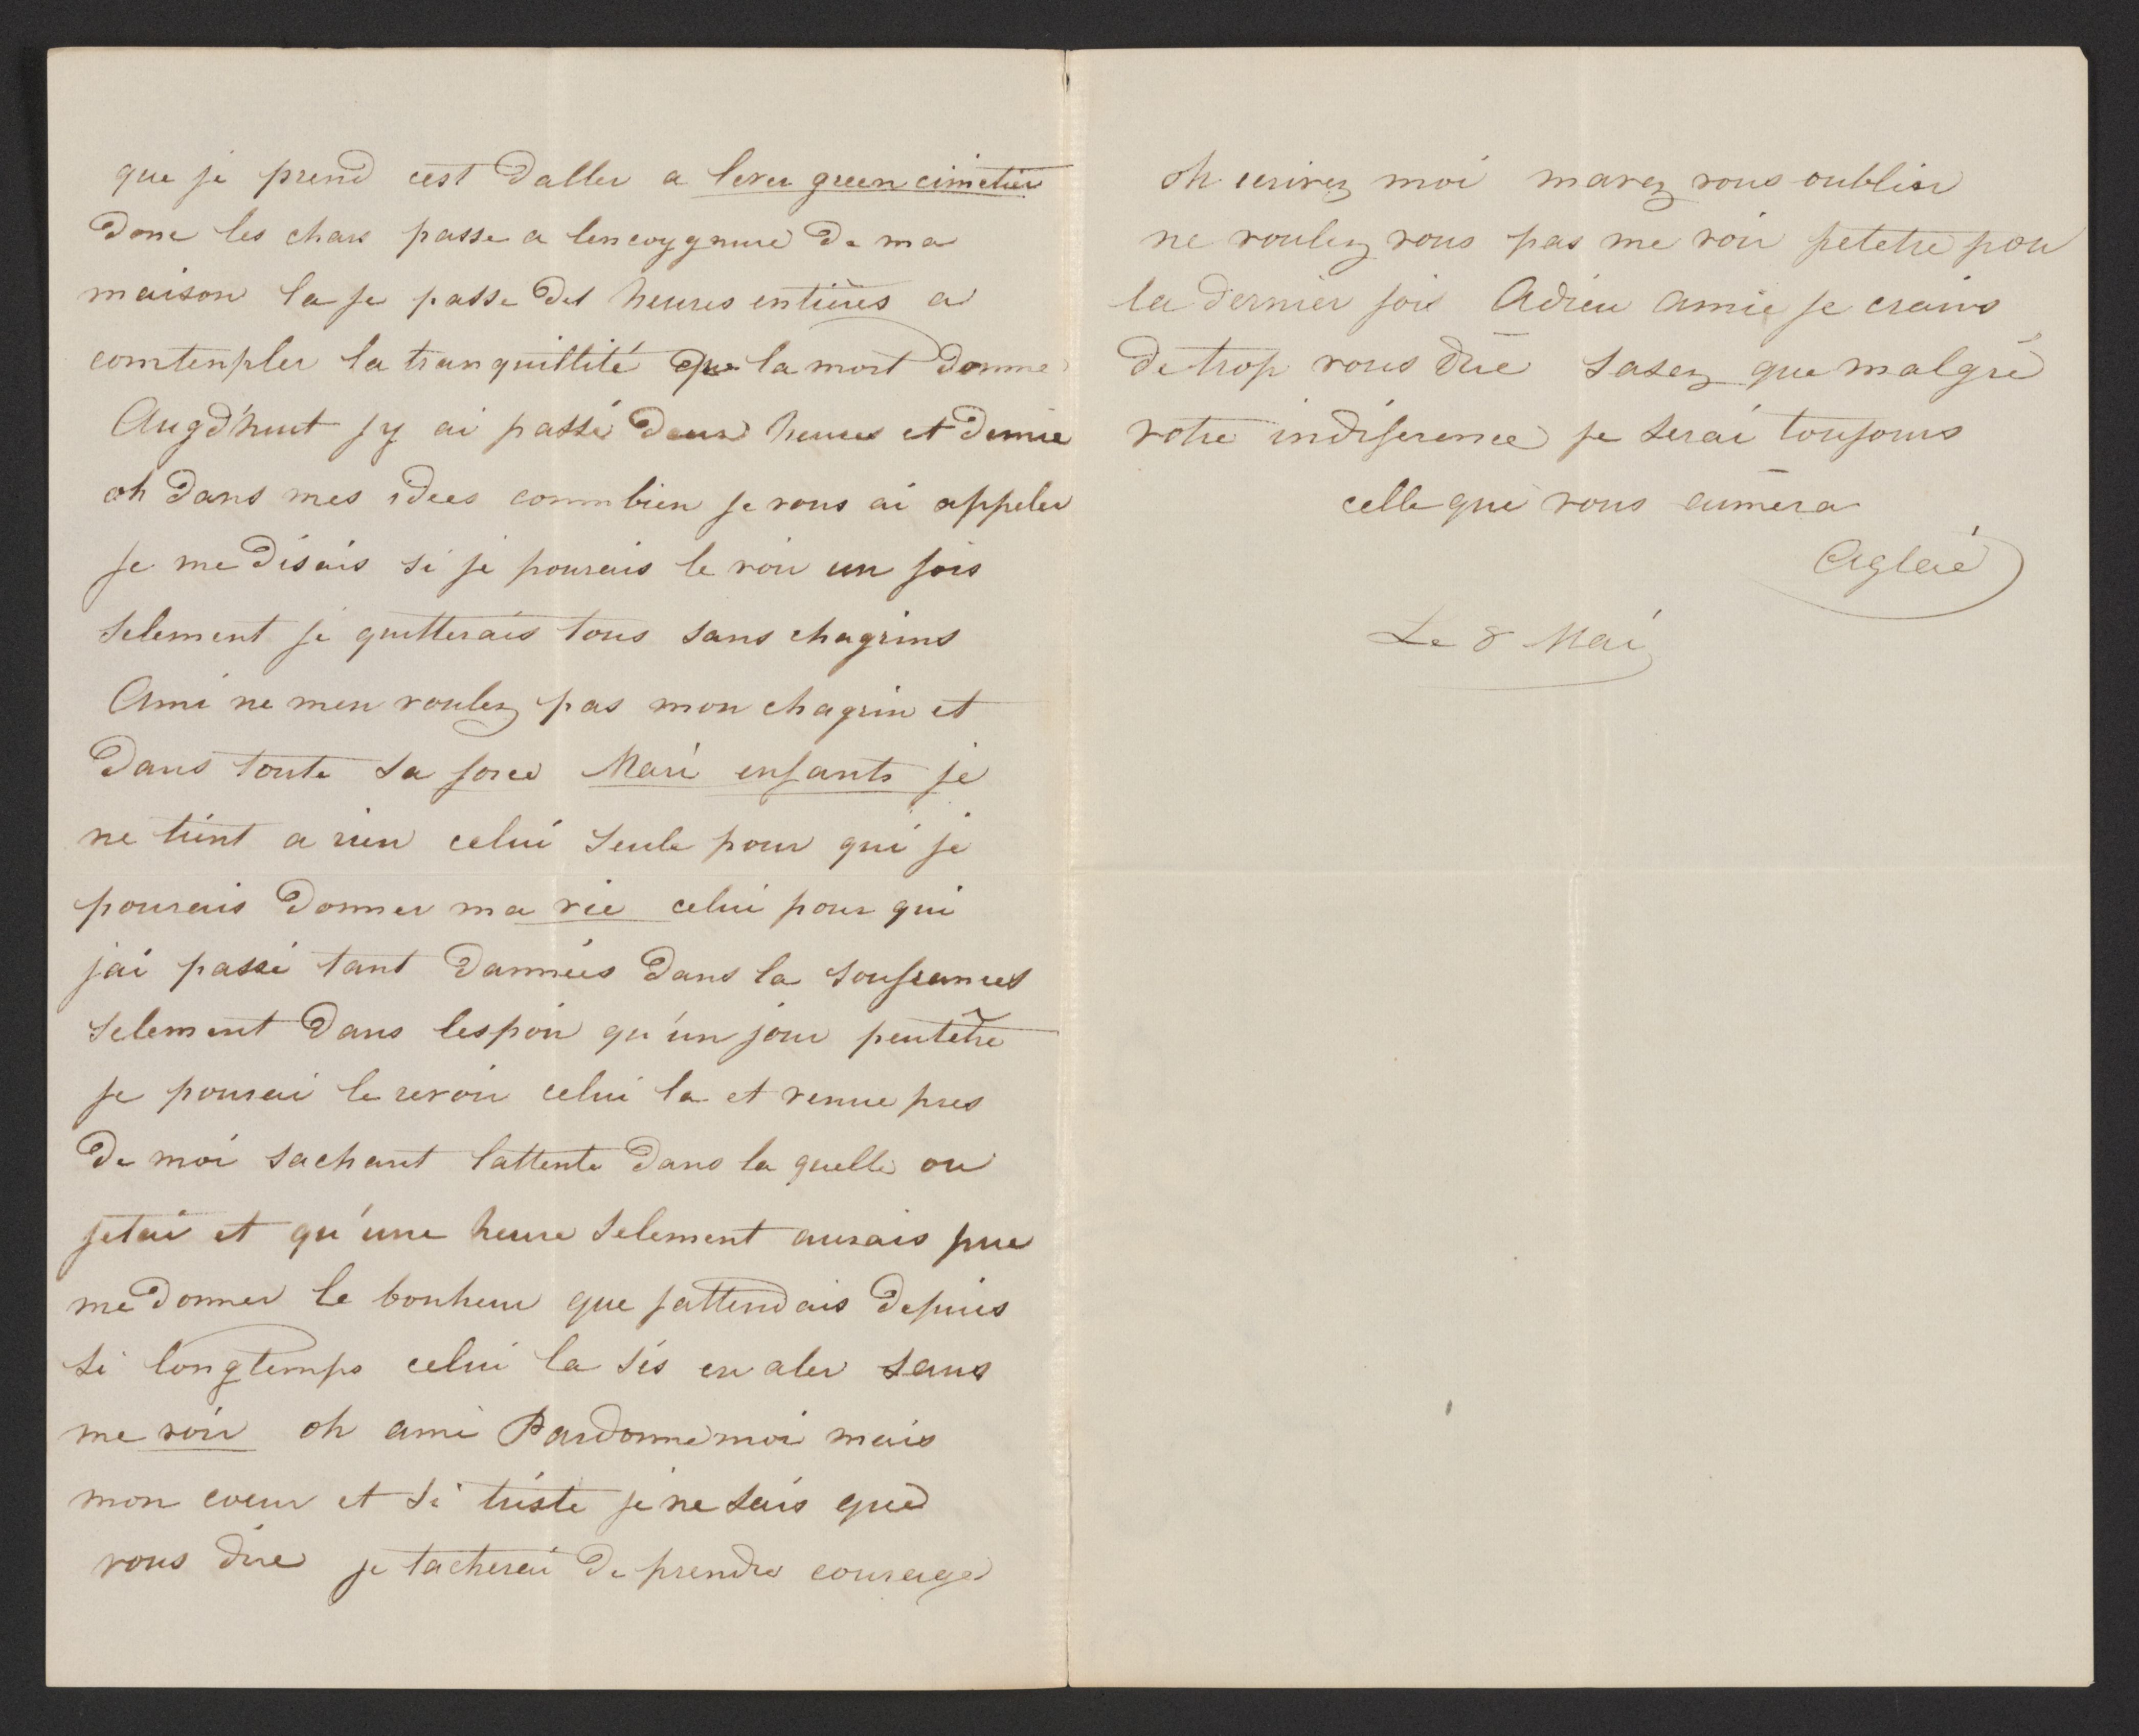 que je prend cest daller a lever green cimetier
donc les chars passe a lencoygnure de ma
maison la je passe des heures entières a
comtenpler la tranquillité que la mort donne
Augd'huit jy ai passé deux heures et demie
oh dans mes idees commbien je vous ai appeler
je me disais si je pourais le voir un fois
selement je quitterais tous sans chagrins
Ami ne men voulez pas mon chagrin et
dans toute sa force Mari enfants je
ne tient a rien celui seule pour qui je
pourais donner ma vie celui pour qui
jai passé tant dannées dans la soufrances
selement dans lespoir qu'un jour peutêtre
je pourai le revoir celui la et venue pres
de moi sachant lattente dans la quelle ou
jetai et qu'une heure selement aurais pue
me donner le bonheur que jattendais depuis
si longtemps celui la sés en aler sans
me voir oh ami Pardonne moi mais
mon coeur et si triste je ne sais que
vous dire je tacherai de prendre courage
oh ecrivez moi mavez vous oublier
ne voulez vous pas me voir petetre pour
la dernier fois Adieu amie je crains
de trop vous dire sasez que malgré
votre indiference je serai toujours
celle qui vous aimera
Aglaé
Le 8 Mai